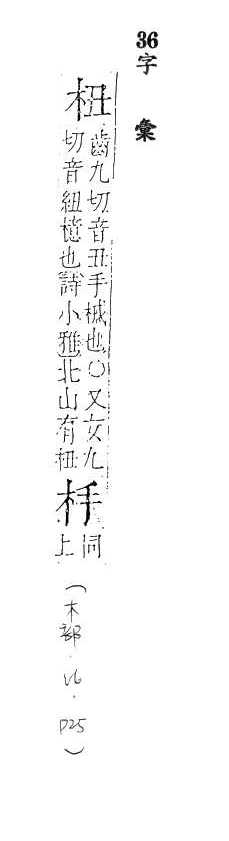 36
字彙
杻
齒九切音丑手械也○又女九
切音紐檍也詩小雅北山有杻
杽
同
上
(木部.V6.P25)